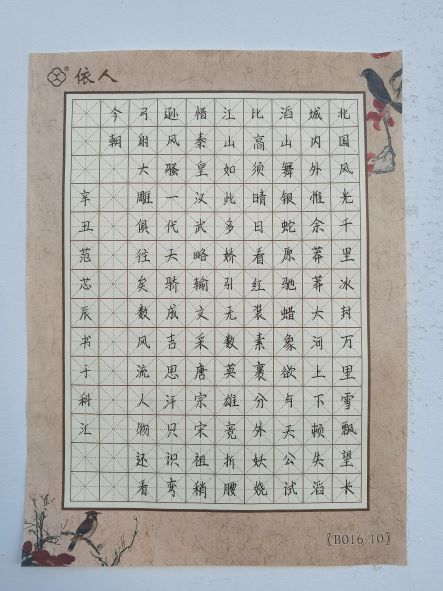 依人
北国风光千里冰封万里雪飘望长
城内外惟余莽莽大河上下顿失滔
滔山舞银蛇愿驰蜡象欲与天公试
比高须晴日看红装素裹分外妖娆
江山如此多娇引无数英雄竞折腰
惜秦皇汉武略输文采唐宗宋祖稍
逊风骚一代天骄成吉思汗只识弯
弓射大雕俱往矣数风流人物还看
今朝
辛丑范芯辰书于科汇
〖B016-10〗